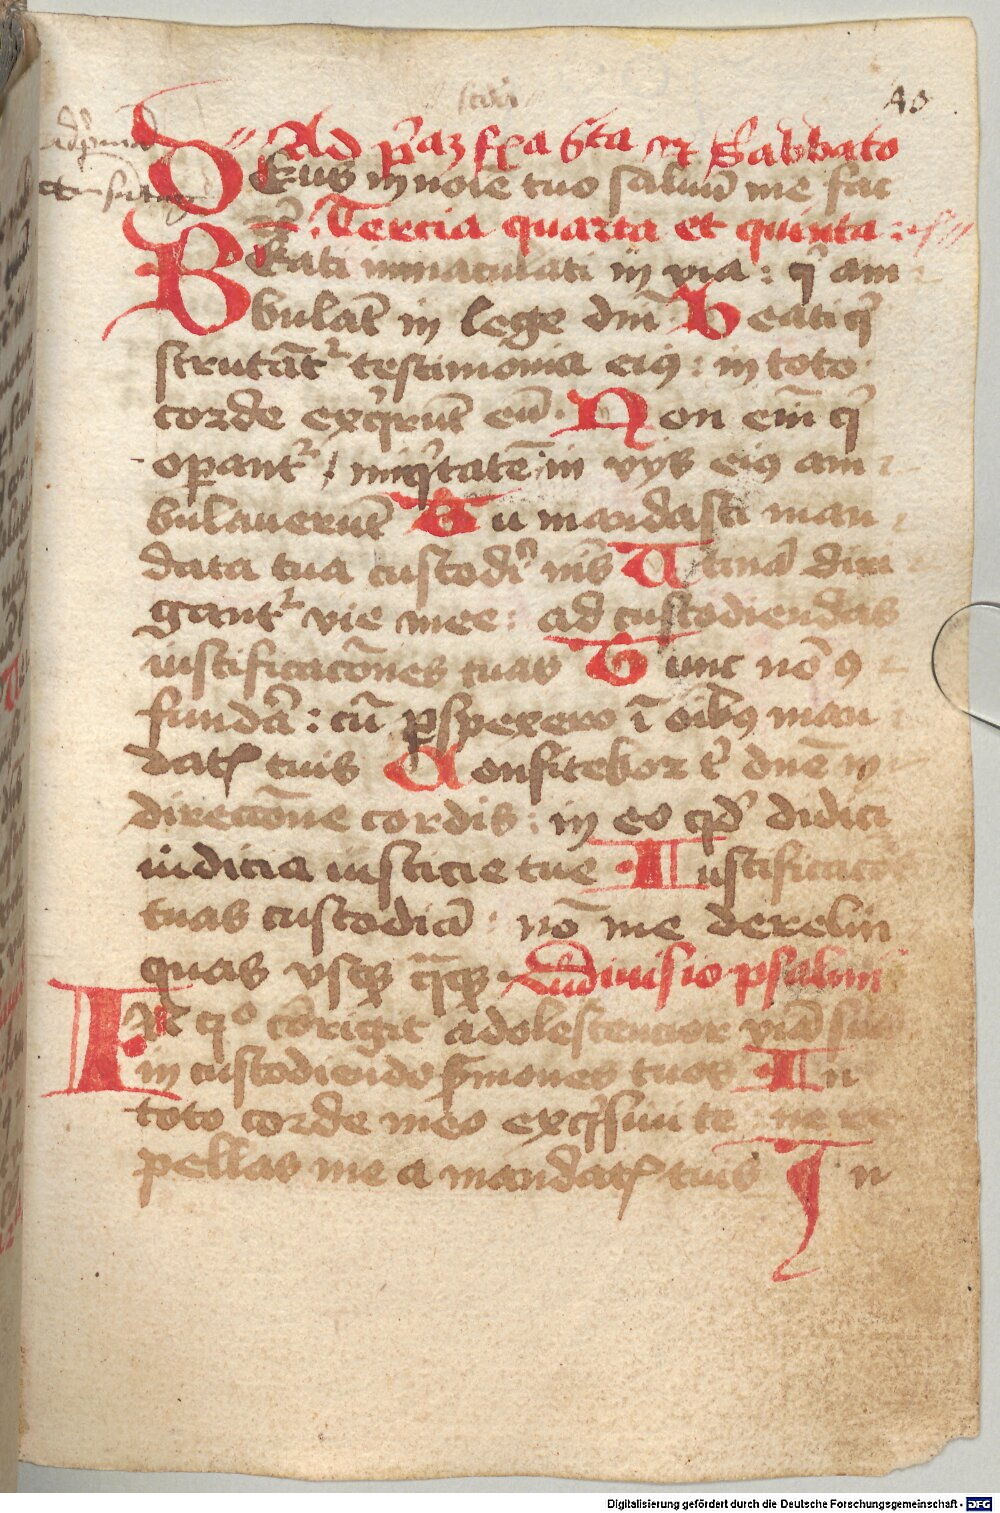 40
Ad p̄aʒ f̄ia 6ta et Sabbato
DEus in noīe tuo saluū me fac
Tercia quarta et quinta :
BEati inmaculati in via : qⁱ am
bulāt in lege dm̄ Beati qⁱ
scrutāt᷑ testimonia eiꝰ : in toto
corde exqⁱrūt eū . Non em̄ qⁱ
operant᷑ iniqⁱtatē in vijs eiꝰ am
bulauerūt Tu mandasti man
data tua custodiⁱ nīs Utinā diri
gant᷑ vie mee : ad custodiendas
iustificacōnes tuas Tunc nō ꝯ
fundār : cū ꝑspexero ī oībꝰ man
datꝭ tuis Confitebor tⁱ dn̄e in
direccōne cordis : in eo qd̓ didici
iudicia iusticie tue Iustificacōes
tuas custodiā : nō me derelin
quas vsqꝫ qᷓqꝫ . Diuisio psalmi
IN qᵒ corrigit adolescencior viā suā
in custodiendo s̓mones tuos In
toto corde meo exqⁱsiui te : ne re
pellas me a mandatꝭ tuis In
Digitalisierung gefördert durch die Deutsche Forschungsgemeinschaft - DFG